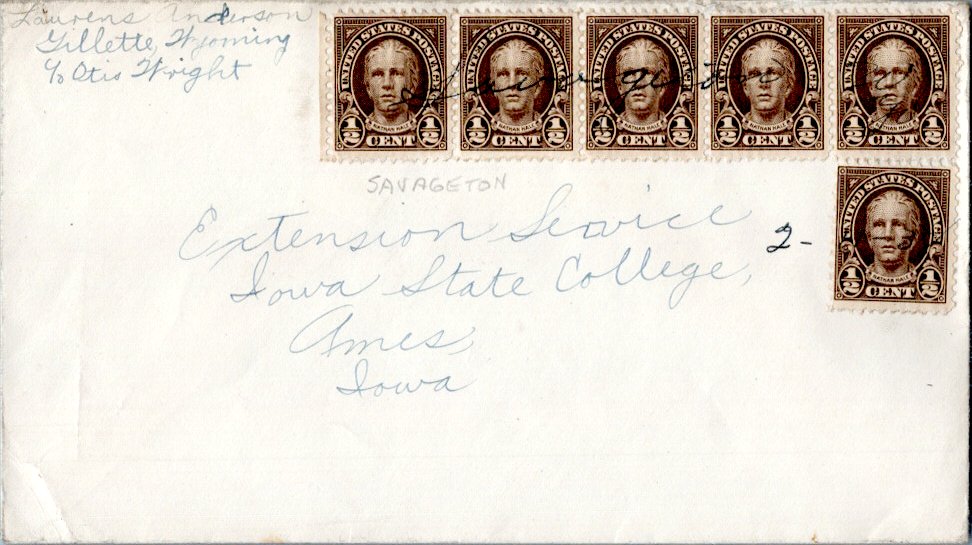 Laurens Anderson
Gillette, Wyoming
c/o Otis Wright
UNITED STATES POSTAGE UNITED STATES POSTAGE UNITED STATES POSTAGE UNITED STATES POSTAGE UNITED STATES POSTAGE
NATHAN HALE NATHAN HALE NATHAN HALE NATHAN HALE NATHAN HALE
1/2 CENT 1/2 1/2 CENT 1/2 1/2 CENT 1/2 1/2 CENT 1/2 1/2 CENT 1/2
SAVAGETON
UNITED STATES POSTAGE
NATHAN HALE
1/2 CENT 1/2
2-
Extension Service
Iowa State College,
Ames,
Iowa